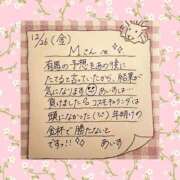 12/26 (金)
Mさん へ
有馬の予想をあの時に
たてると言っていたから、結果が
気になります あいすは…
負けました名 コスモキュランダは
頭になかった(>_<) 年明けの
金杯で勝たないと
ですッ!! あいす